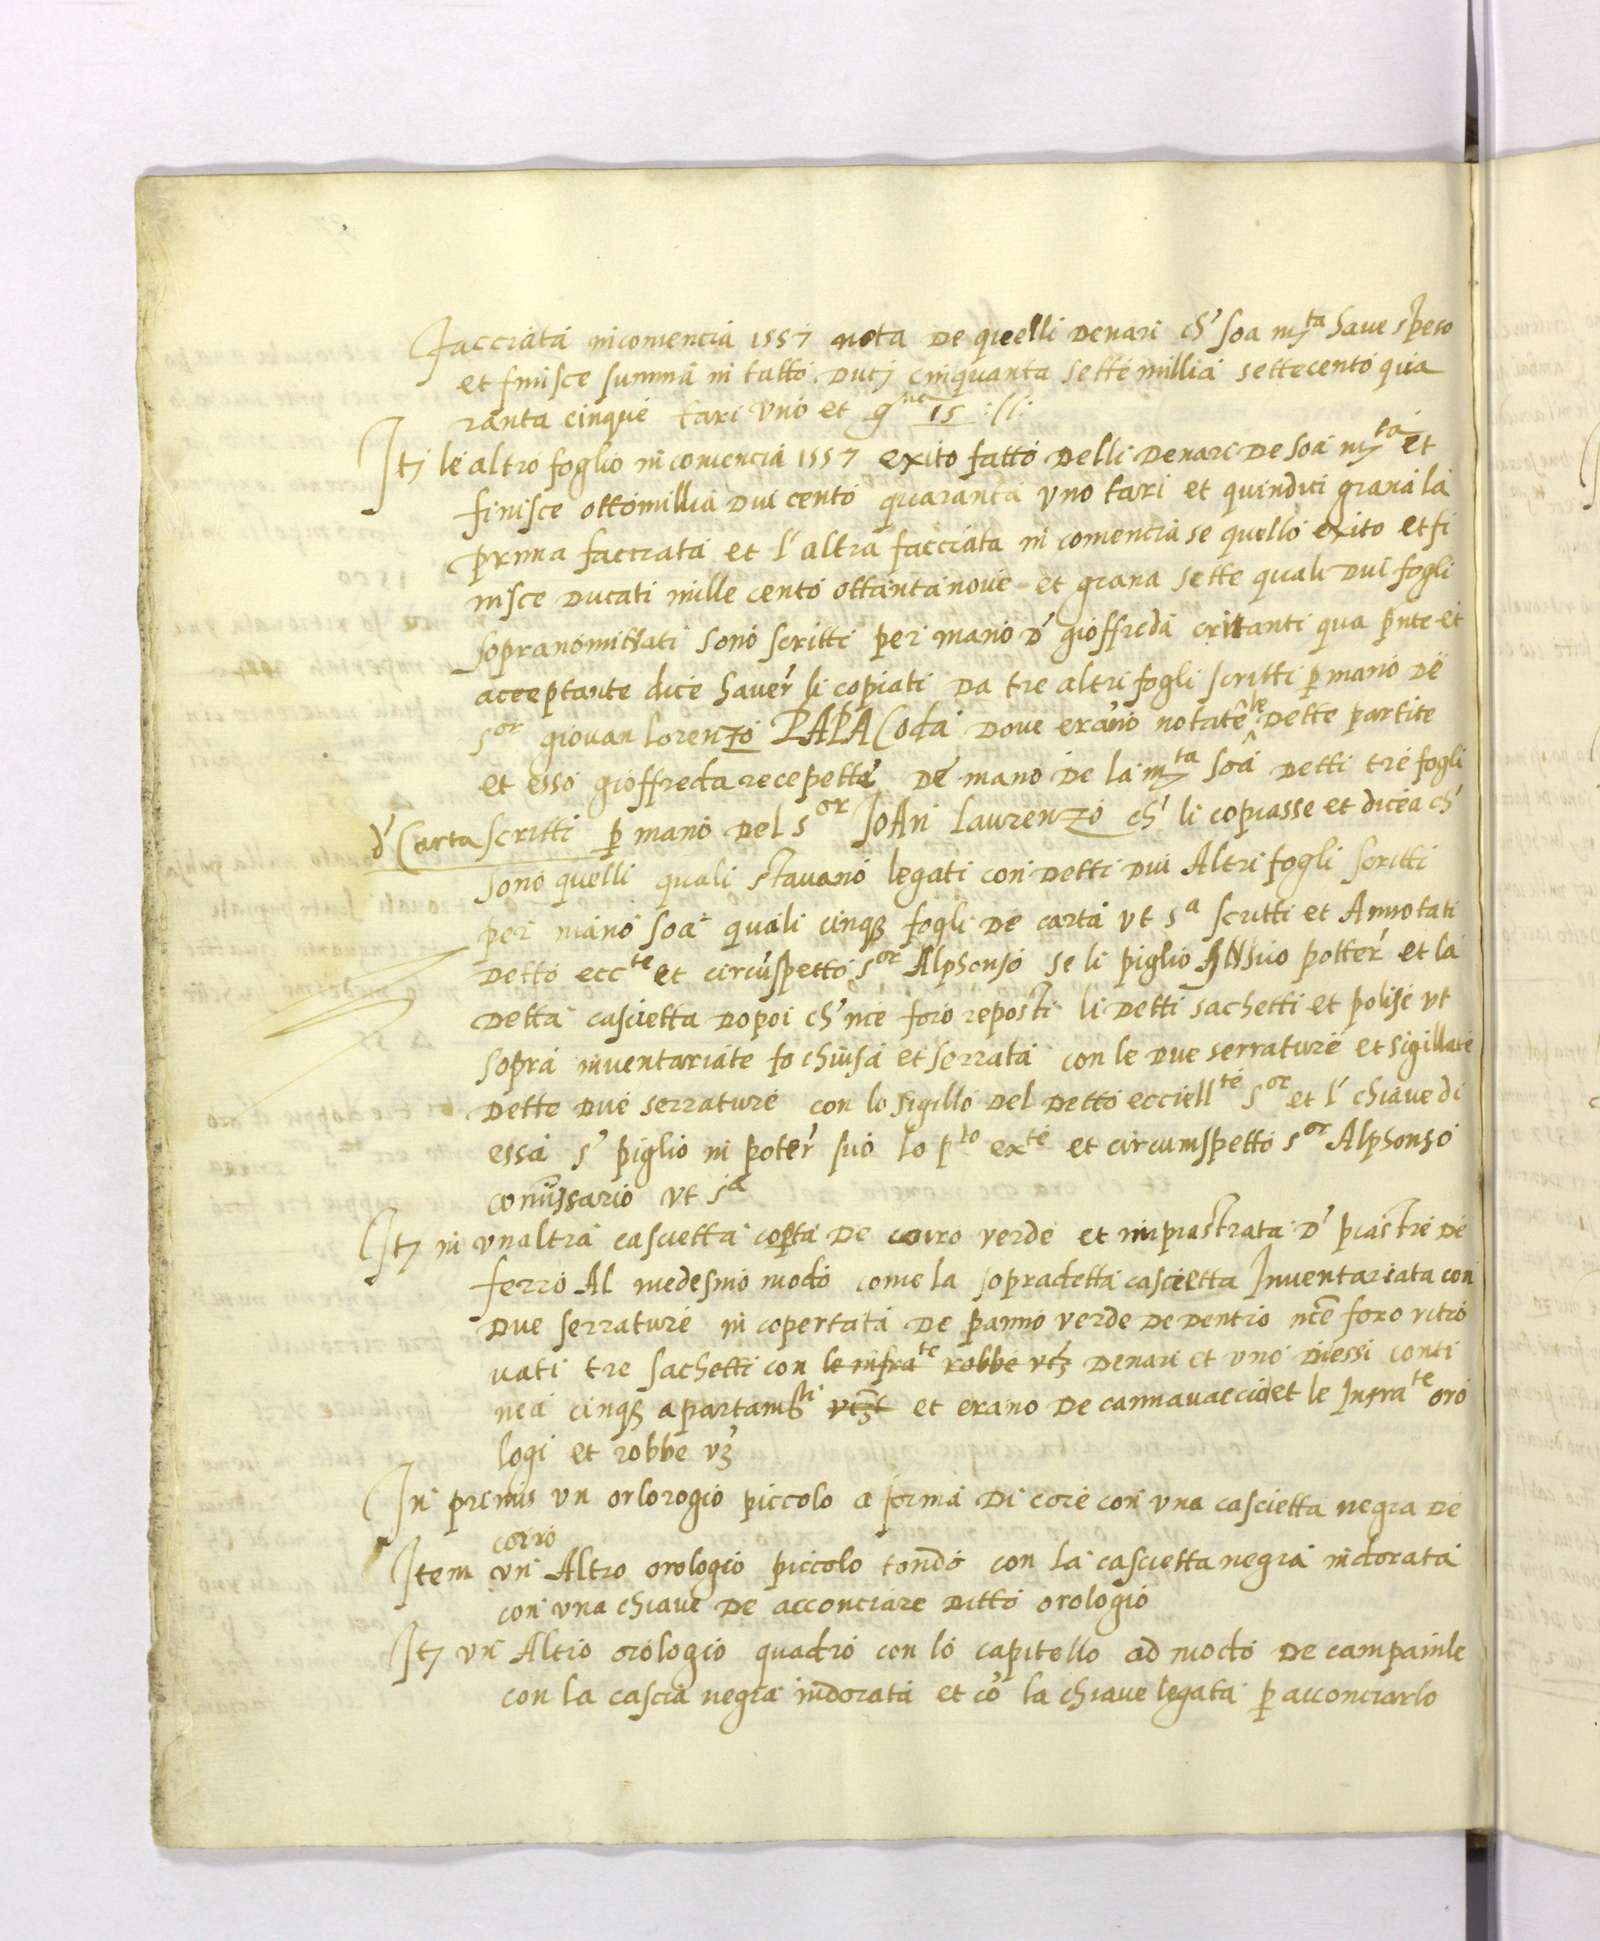 facciata incomencia 1557 nota de quelli denari ch' soa m.ta have speso
et finisce summa in tutto. Ducj cinquanta sette millia settecento qua
ranta cinque tari uno et g.ne 15 ://:
Itj le altro foglio incomencia 1557 exito fatto delli denari de soa m.ta et
finisce ottomillia dui cento quaranta uno tari et quindici grana la
prima facciata et l'altra facciata in comencia se quello exito et fi
nisce ducati mille cento ottanta nove et grana sette quali dui fogli
sopranominati sono scritti per mano d' gioffreda critanti qua pnte et
acceptante dice haver' li copiati da tre altri fogli scritti p mano de
s.or giovan lorenzo PAPA Coda dove erano notate le dette partite
et esso gioffreda recepette de mano de la m.ta soa detti tre fogli
d' Carta scritti p mano del s.or IoAn Laurenzo ch' li copiasse et dicea ch'
sono quelli quali stavano legati con detti dui Altri fogli scritti
per mano soa quali cinq; fogli de carta ut s.a scritti et Annotati
detto ecc.te et circuspetto s.or Alphonso se li piglio IN suo potter' et la
detta cascietta dopoi ch' nce foro reposti li detti sachetti et polise ut
sopra inventariate fo chiusa et serrata con le due serrature et sigillate
dette due serrature con lo sigillo del detto ecciell.te s.or et l' chiave di
essa s' piglio in poter' suo lo p.to ex.te et circumspetto s.or Alphonso
comissario ut s.a
Itj in unaltra cascietta copta de coiro verde et inpiastrata d' piastre de
ferro Al medesmo modo come la sopradetta cascietta Inventariata con
due serrature in copertata de panno verde de dentro nce foro ritro
vati tre sachetti con le infra.te robbe vtz denari et uno diessi conti
nea cinq; apartam.ti vtz et erano de cannavaccio et le Infra.te oro
logi et robbe vz
In primis un orlorogio piccolo a forma di core con una cascietta negra de
corio
Item un Altro orologio piccolo tondo con la cascietta negra indorata
con una chiave de acconciare ditto orologio
Itj un Altro orologio quadro con lo capitello ad modo de campanile
con la cascia negra indorata et co' la chiave legata p acconciarlo